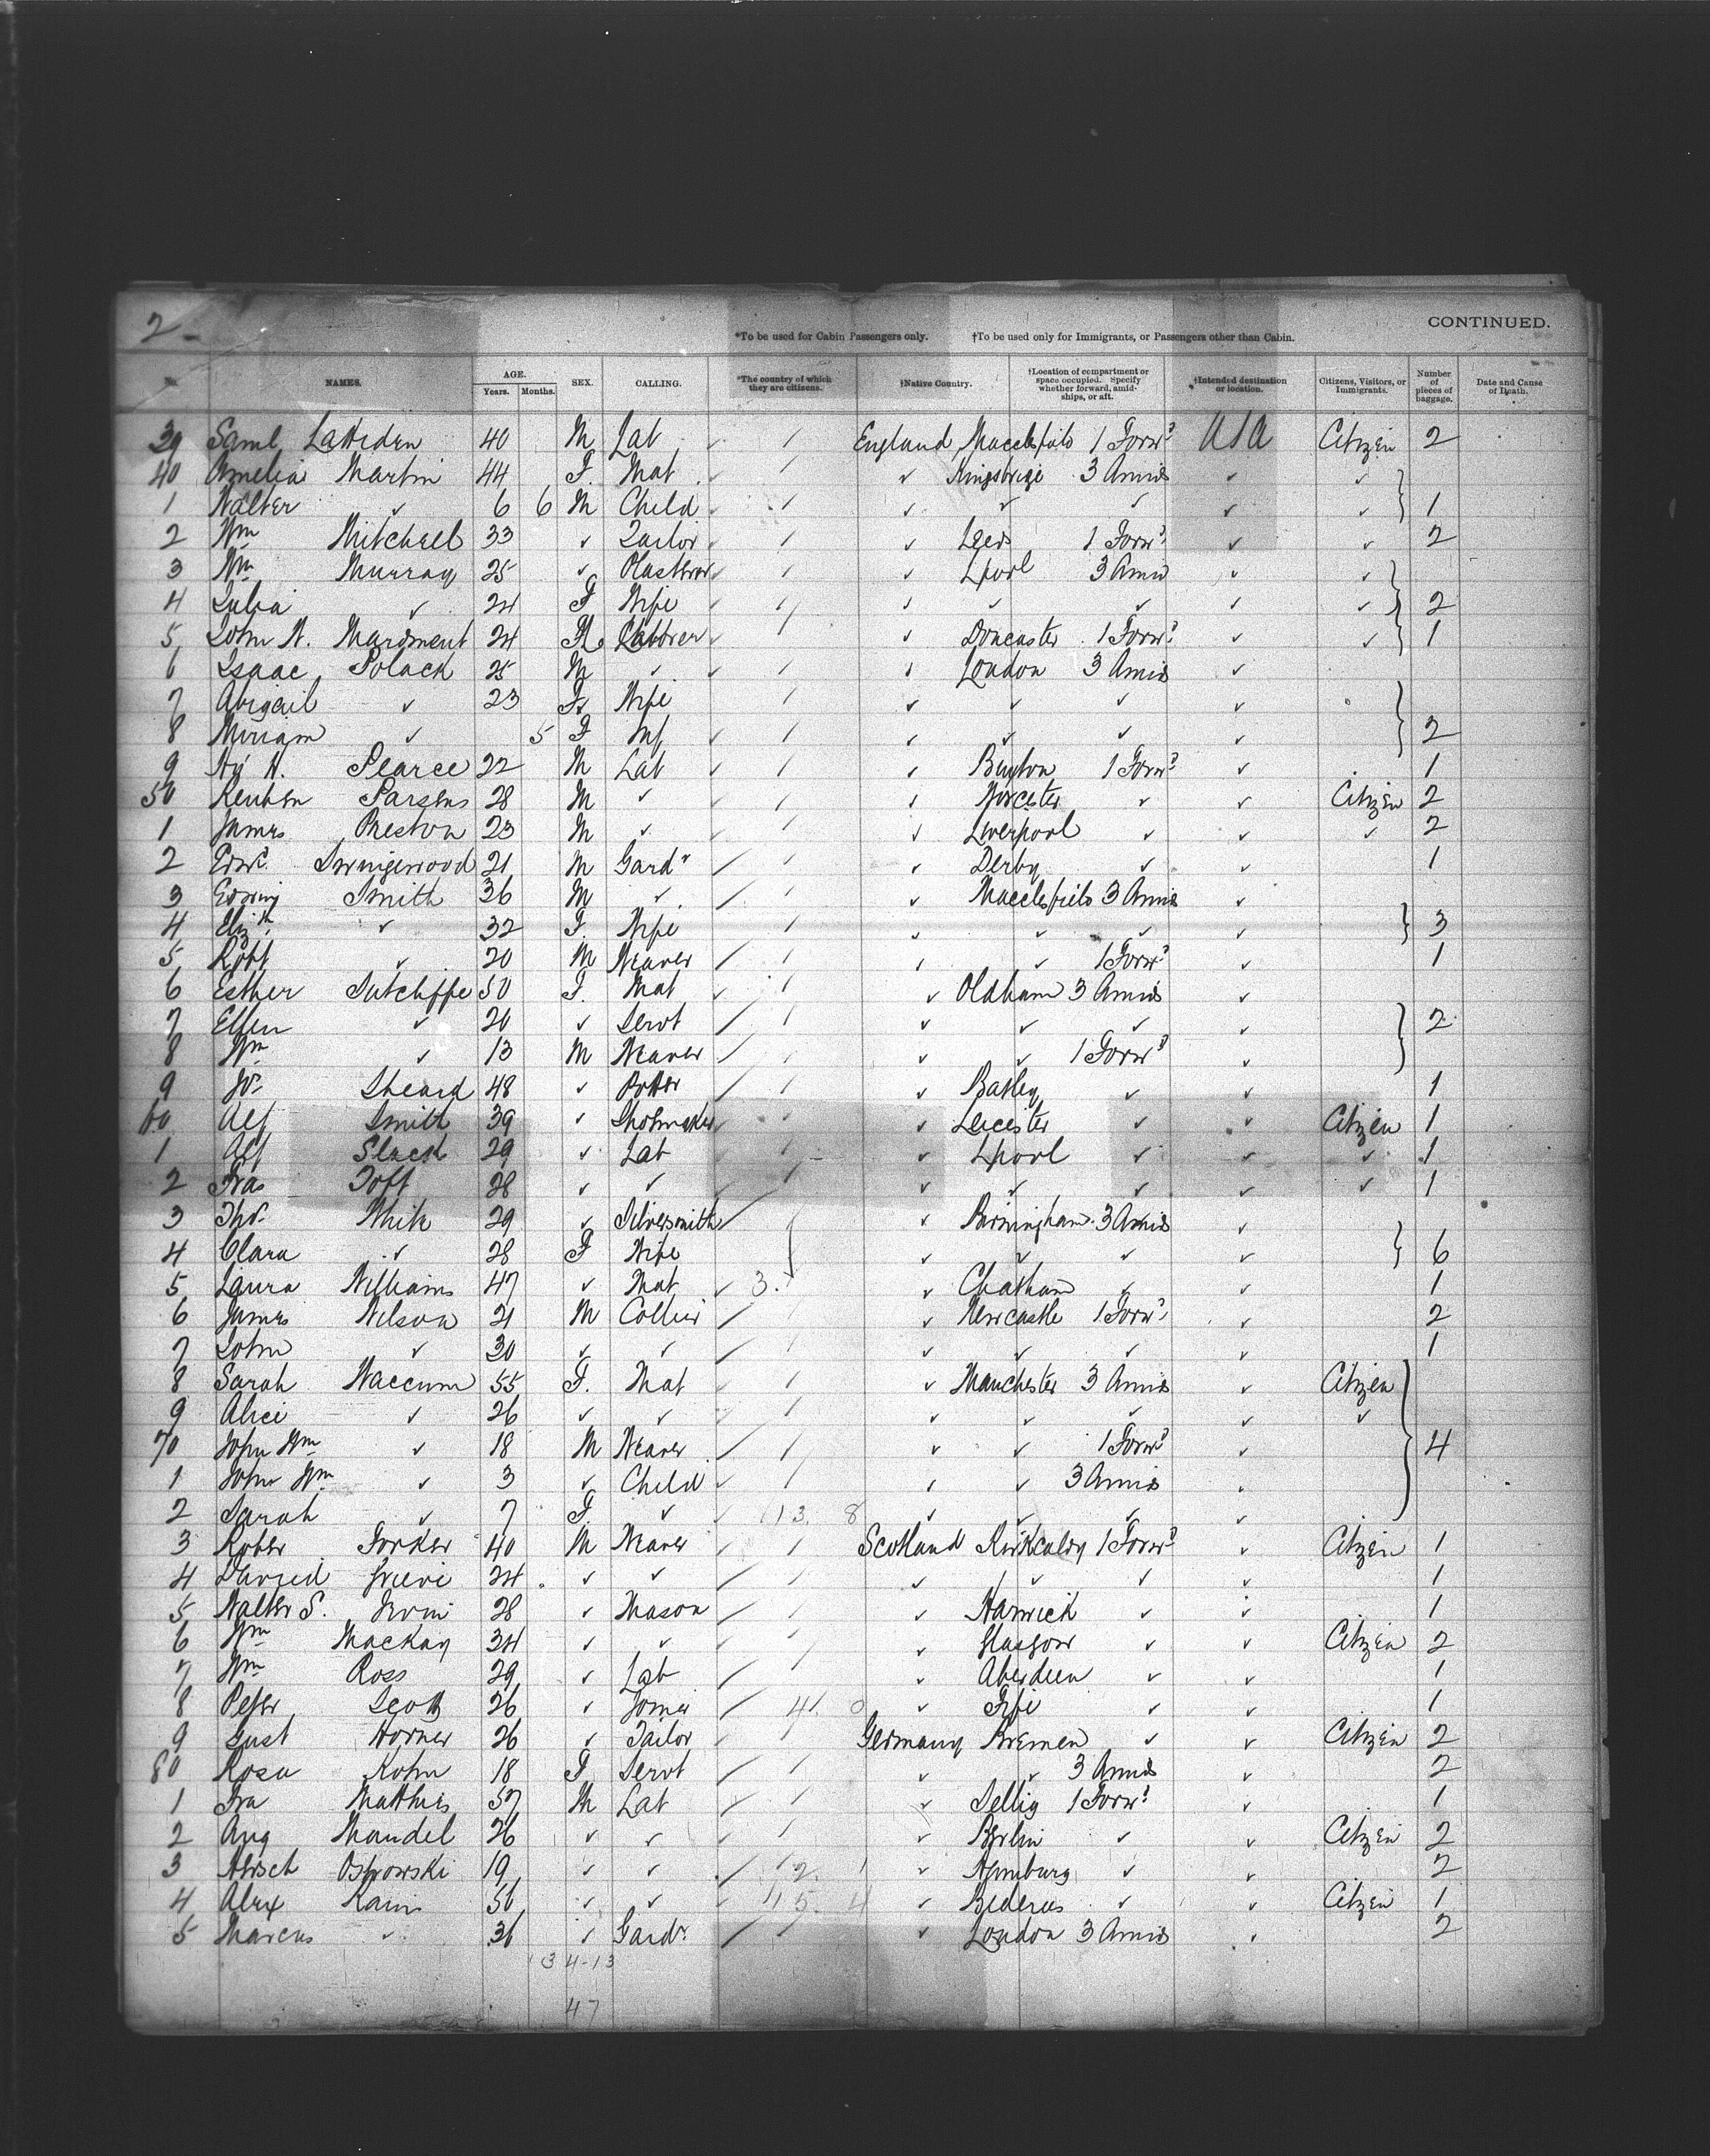 2 -
CONTINUED.
*To be used for Cabin Passengers only. †To be used only for Immigrants, or Passengers other than Cabin.
NAMES. AGE. Years. Months. SEX. CALLING. *The country of which they are citizens. †Native Country. †Location of compartment or space occupied. Specify whether forward, amidships, or aft. †Intended destination or location. Citizens, Visitors, or Immigrants. Number of pieces of baggage. Date and Cause of Death.
39 Saml 40 M Lab ✓ / England Macclesfield 1 Forwd USA Citizen 2
40 Amelia Martin 44 F. Mat / ✓ 3 Amid ✓ ✓
1 Walter ✓ 6 6 M Child / ✓ ✓ ✓ ✓ ✓ 1
2 Wm Mitchell 33 ✓ Tailor ✓ / ✓ Leeds 1 Forwd ✓ ✓ 2
3 Wm Murray 25 ✓ / ✓ Lpool 3 Amid ✓ ✓
4 Julia ✓ 24 F Wife ✓ / ✓ ✓ ✓ ✓ ✓ 2
5 John W. 24 Labourer ✓ / ✓ Doncaster 1 Forwd ✓ ✓ 1
6 Isaac Polack 25 M ✓ ✓ / ✓ London 3 Amid ✓
7 Abigail ✓ 23 F Wife / ✓ ✓ ✓ ✓
8 Miriam ✓ 5 F Inf ✓ / ✓ ✓ ✓ ✓ 2
9 Hy H. Pearce 22 M Lab ✓ / ✓ Buxton 1 Forwd ✓ 1
50 Reuben Parsons 28 M ✓ ✓ / ✓ Worcester ✓ ✓ Citizen 2
1 James Preston 23 M ✓ / ✓ Liverpool ✓ ✓ ✓ 2
2 Edwd. Swingewood 21 M Gardr / / ✓ Derby ✓ ✓ 1
3 Smith 36 M ✓ / / ✓ Macclesfield 3 Amid ✓
4 Elizth ✓ 32 F. Wife / ✓ ✓ ✓ ✓ 3
5 Robt ✓ 20 M Weaver / / ✓ ✓ 1 Forwd ✓ 1
6 Esther Sutcliffe 50 F. Mat ✓ / ✓ Oldham 3 Amid ✓
7 Ellen ✓ 20 ✓ Servt / / ✓ ✓ ✓ ✓ 2
8 Wm ✓ 13 M Weaver / / ✓ ✓ 1 Forwd ✓
9 Jos Sheard 48 ✓ Potter / / ✓ Batley ✓ ✓ 1
60 Alf Smith 39 ✓ Shoemaker / ✓ Leicester ✓ ✓ Citizen 1
1 Alf Slack 29 ✓ Lab / ✓ Lpool ✓ ✓ ✓ 1
2 Fras Toft 28 ✓ ✓ / ✓ ✓ ✓ ✓ ✓ 1
3 Thos. White 29 ✓ Silversmith / ✓ Birmingham 3 Amid ✓
4 Clara ✓ 28 F Wife ✓ ✓ ✓ ✓ 6
5 Laura Williams 47 ✓ Mat ✓ 3. ✓ Chatham ✓ ✓ 1
6 James Wilson 21 M Collier / / ✓ Newcastle 1 Forwd ✓ 2
7 John ✓ 30 ✓ ✓ / / ✓ ✓ ✓ ✓ 1
8 Sarah 55 F. Mat ✓ / ✓ Manchester 3 Amid ✓ Citizen
9 Alice ✓ 26 ✓ ✓ / ✓ ✓ ✓ ✓ ✓
70 John Wm ✓ 18 M Weaver / / ✓ ✓ 1 Forwd ✓ 4
1 John Wm ✓ 3 ✓ Child ✓ / ✓ ✓ 3 Amid ✓
2 Sarah ✓ 7 F. ✓ ✓ 13. 8 ✓ ✓ ✓ ✓
3 Rober Forker 40 M Weaver / Scotland Kirkcaldy 1 Forwd ✓ Citizen 1
4 24 ✓ ✓ / / ✓ ✓ ✓ ✓ 1
5 Walter S. 28 ✓ Mason / / ✓ Hawick ✓ ✓ 1
6 Wm Mackay 34 ✓ ✓ / ✓ Glasgow ✓ ✓ Citizen 2
7 Wm Ross 29 ✓ Lab / / ✓ Aberdeen ✓ ✓ 1
8 Peter Scott 26 ✓ Joiner / 4. 0 ✓ Fife ✓ ✓ 1
9 Gust Horner 26 ✓ Tailor / Germany Bremen ✓ ✓ Citizen 2
80 Rosa Kohn 18 F Servt / / ✓ ✓ 3 Amid ✓ 2
1 Fra Matthies 57 M Lab / / ✓ 1 Forwd ✓ 1
2 Aug Mandel 26 ✓ ✓ ✓ / ✓ Berlin ✓ ✓ Citizen 2
3 Ostrowski 19 ✓ ✓ / 2. 1 ✓ Hamburg ✓ ✓ 2
4 Alex 50 ✓ ✓ 15. 4 ✓ ✓ ✓ Citizen 1
5 Marcus ✓ 31 ✓ Gardr / / ✓ London 3 Amid ✓ 2
34-13
47